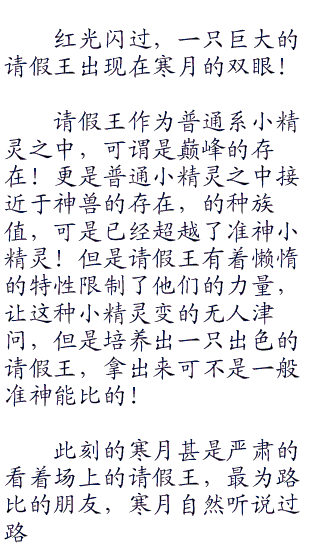 红光闪过，一只巨大的
请假王出现在寒月的双眼！
请假王作为普通系小精
灵之中，可谓是巅峰的存
在！更是普通小精灵之中接
近于神兽的存在，的种族
值，可是已经超越了准神小
精灵！但是请假王有着懒惰
的特性限制了他们的力量，
让这种小精灵变的无人津
问，但是培养出一只出色的
请假王，拿出来可不是一般
准神能比的！
此刻的寒月甚是严肃的
看着场上的请假王，最为路
比的朋友，寒月自然听说过
路